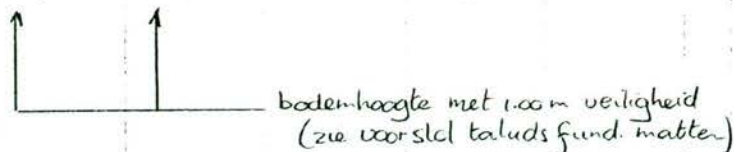 bodemhoogte met 1.00 m veiligheid
(zie voorstel taluds fund. matten)